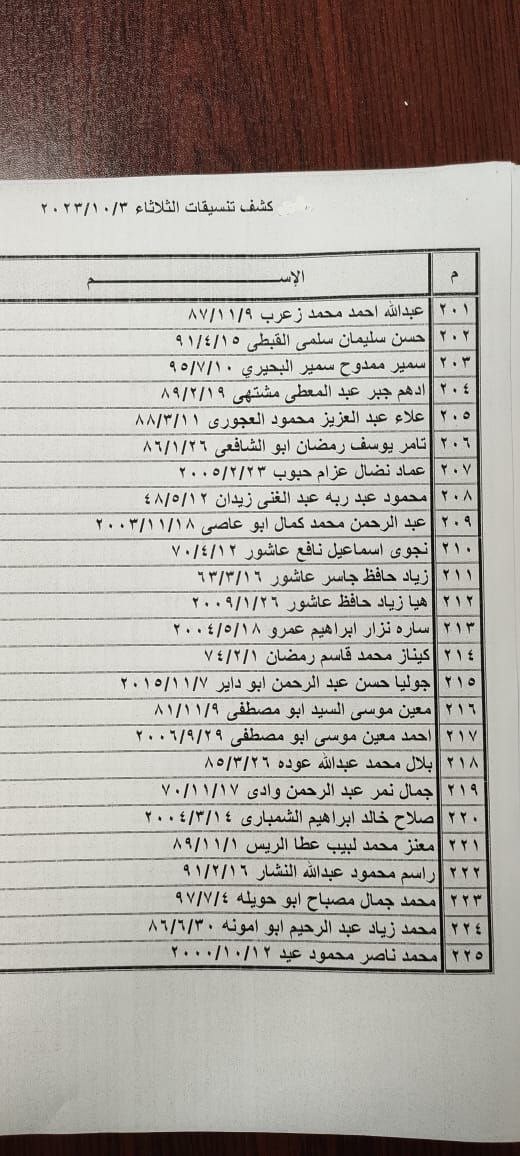 كشف تنسيقات الثلاثاء ٢٠٢٣/١٠/٣
م الإســـــــــــــــم
٢٠١ عبدالله احمد محمد زعرب ٨٧/١١/٩
٢٠٢ حسن سليمان سلمى القبطى ٩١/٤/١٥
٢٠٣ سمير ممدوح سمير البحيري ٩٥/٧/١٠
٢٠٤ ادهم جبر عبد المعطى مشتهى ٨٩/٢/١٩
٢٠٥ علاء عبد العزيز محمود العجورى ٨٨/٣/١١
٢٠٦ تامر يوسف رمضان ابو الشافعى ٨٦/١/٢٦
٢٠٧ عماد نضال عزام حبوب ٢٠٠٥/٢/٢٣
٢٠٨ محمود عبد ربه عبد الغنى زيدان ٤٨/٥/١٢
٢٠٩ عبد الرحمن محمد كمال ابو عاصى ٢٠٠٣/١١/١٨
٢١٠ نجوى اسماعيل نافع عاشور ٧٠/٤/١٢
٢١١ زياد حافظ جاسر عاشور ٦٣/٣/١٦
٢١٢ هيا زياد حافظ عاشور ٢٠٠٩/١/٢٦
٢١٣ ساره نزار ابراهيم عمرو ٢٠٠٤/٥/١٨
٢١٤ كيناز محمد قاسم رمضان ٧٤/٢/١
٢١٥ جوليا حسن عبد الرحمن ابو داير ٢٠١٥/١١/٧
٢١٦ معين موسى السيد ابو مصطفى ٨١/١١/٩
٢١٧ احمد معين موسى ابو مصطفى ٢٠٠٦/٩/٢٩
٢١٨ بلال محمد عبدالله عوده ٨٥/٣/٢٦
٢١٩ جمال نمر عبد الرحمن وادى ٧٠/١١/١٧
٢٢٠ صلاح خالد ابراهيم الشمبارى ٢٠٠٤/٣/١٤
٢٢١ معتز محمد لبيب عطا الريس ٨٩/١١/١
٢٢٢ راسم محمود عبدالله النشار ٩١/٢/١٦
٢٢٣ محمد جمال مصباح ابو حويله ٩٧/٧/٤
٢٢٤ محمد زياد عبد الرحيم ابو امونه ٨٦/٦/٣٠
٢٢٥ محمد ناصر محمود عيد ٢٠٠٠/١٠/١٢